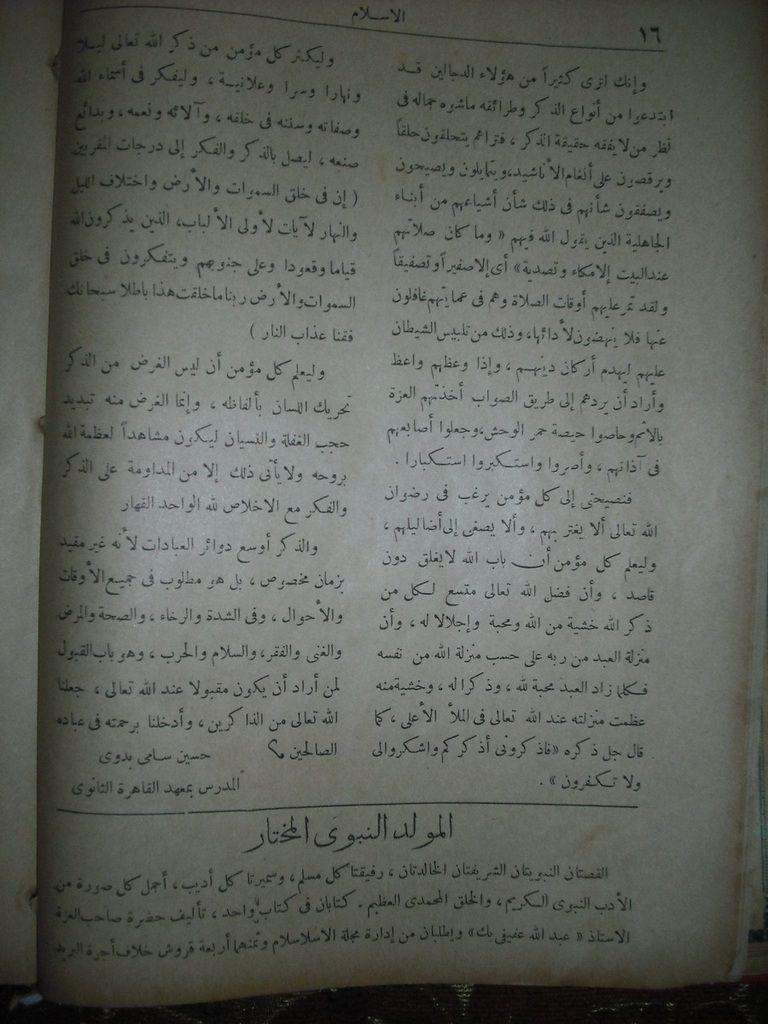 ١٦
الاسلام
وإنك لترى كثيراً من هؤلاء الدجالين قد
ابتدعوا من أنواع الذكر وطرائقه ماشوه جماله فى
نظر من لا يفقه حقيقة الذكر ، فتراهم يتحلقون حلقاً
ويرقصون على أنغام الأناشيد، ويتمايلون ويصيحون
ويصفقون شأنهم فى ذلك شأن أشياعهم من أبناء
الجاهلية الذين يقول الله فيهم « وما كان صلاتهم
عند البيت إلا مكاء وتصدية» أى إلا صفيراً وتصفيقاً
ولقد تمر عليهم أوقات الصلاة وهم فى عمايتهم غافلون
عنها فلا ينهضون لأدائها، وذلك من تلبيس الشيطان
عليهم ليهدم أركان دينهم ، وإذا وعظهم واعظ
وأراد أن يردهم إلى طريق الصواب أخذتهم العزة
بالاثم وحاصوا حيصة حمر الوحش، وجعلوا أصابعهم
فى آذانهم ، وأصروا واستكبروا استكبارا .
فنصيحتى إلى كل مؤمن يرغب فى رضوان
الله تعالى ألا يغتر بهم ، وألا يصغى إلى أضاليلهم ،
وليعلم كل مؤمن أن باب الله لايغلق دون
قاصد ، وأن فضل الله تعالى متسع لكل من
ذكر الله خشية من الله ومحبة وإجلالا له ، وأن
منزلة العبد من ربه على حسب منزلة الله من نفسه
فكلما زاد العبد محبة لله ، وذكرا له ، وخشية منه
عظمت منزلته عند الله تعالى فى الملأ الأعلى ، كما
قال جل ذكره «فاذكرونى أذكركم واشكروالى
ولا تكفرون » .
وليكثر كل مؤمن من ذكر الله تعالى ليلا
ونهارا وسرا وعلانية ، وليفكر فى أسماء الله
وصفاته وسننه فى خلقه ، وآلائه ونعمه ، وبدائع
صنعه ، ليصل بالذكر والفكر إلى درجات المقربين
( إن فى خلق السموات والأرض واختلاف الليل
والنهار لآيات لأولى الألباب، الذين يذكرون الله
قياما وقعودا وعلى جنوبهم ويتفكرون فى خلق
السموات والأرض ربنا ماخلقت هذا باطلا سبحانك
فقنا عذاب النار )
وليعلم كل مؤمن أن ليس الغرض من الذكر
تحريك اللسان بألفاظه ، وإنما الغرض منه تبديد
حجب الغفلة والنسيان ليكون مشاهداً لعظمة الله
بروحه ولا يأتى ذلك إلا من المداومة على الذكر
والفكر مع الاخلاص لله الواحد القهار
والذكر أوسع دوائر العبادات لأنه غير مقيد
بزمان مخصوص ، بل هو مطلوب فى جميع الأوقات
والأحوال ، وفى الشدة والرخاء ، والصحة والمرض
والغنى والفقر، والسلام والحرب ، وهو باب القبول
لمن أراد أن يكون مقبولا عند الله تعالى ، جعلنا
الله تعالى من الذاكرين ، وأدخلنا برحمته فى عباده
الصالحين ؟ حسين سامى بدوى
المدرس بمعهد القاهرة الثانوى
المولد النبوى المختار
القصتان النبويتان الشريفتان الخالدتان ، رفيقتا كل مسلم ، وسميرتا كل أديب ، أجمل كل صورة من
الأدب النبوى الكريم ، والخلق المحمدى العظيم . كتابان فى كتاب واحد ، تأليف حضرة صاحب العزة
الاستاذ « عبد الله عفيفى بك» ويطلبان من إدارة مجلة الاسلاسلام وثمنهما أربعة قروش خلاف أجرة البريد